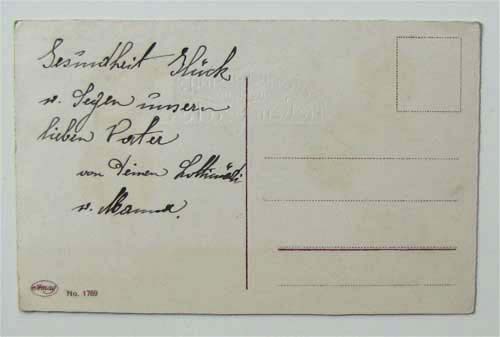 Gesundheit Glück
u. Segen unsern
lieben Vater
von Deinen
u. Mamma.
No. 1769